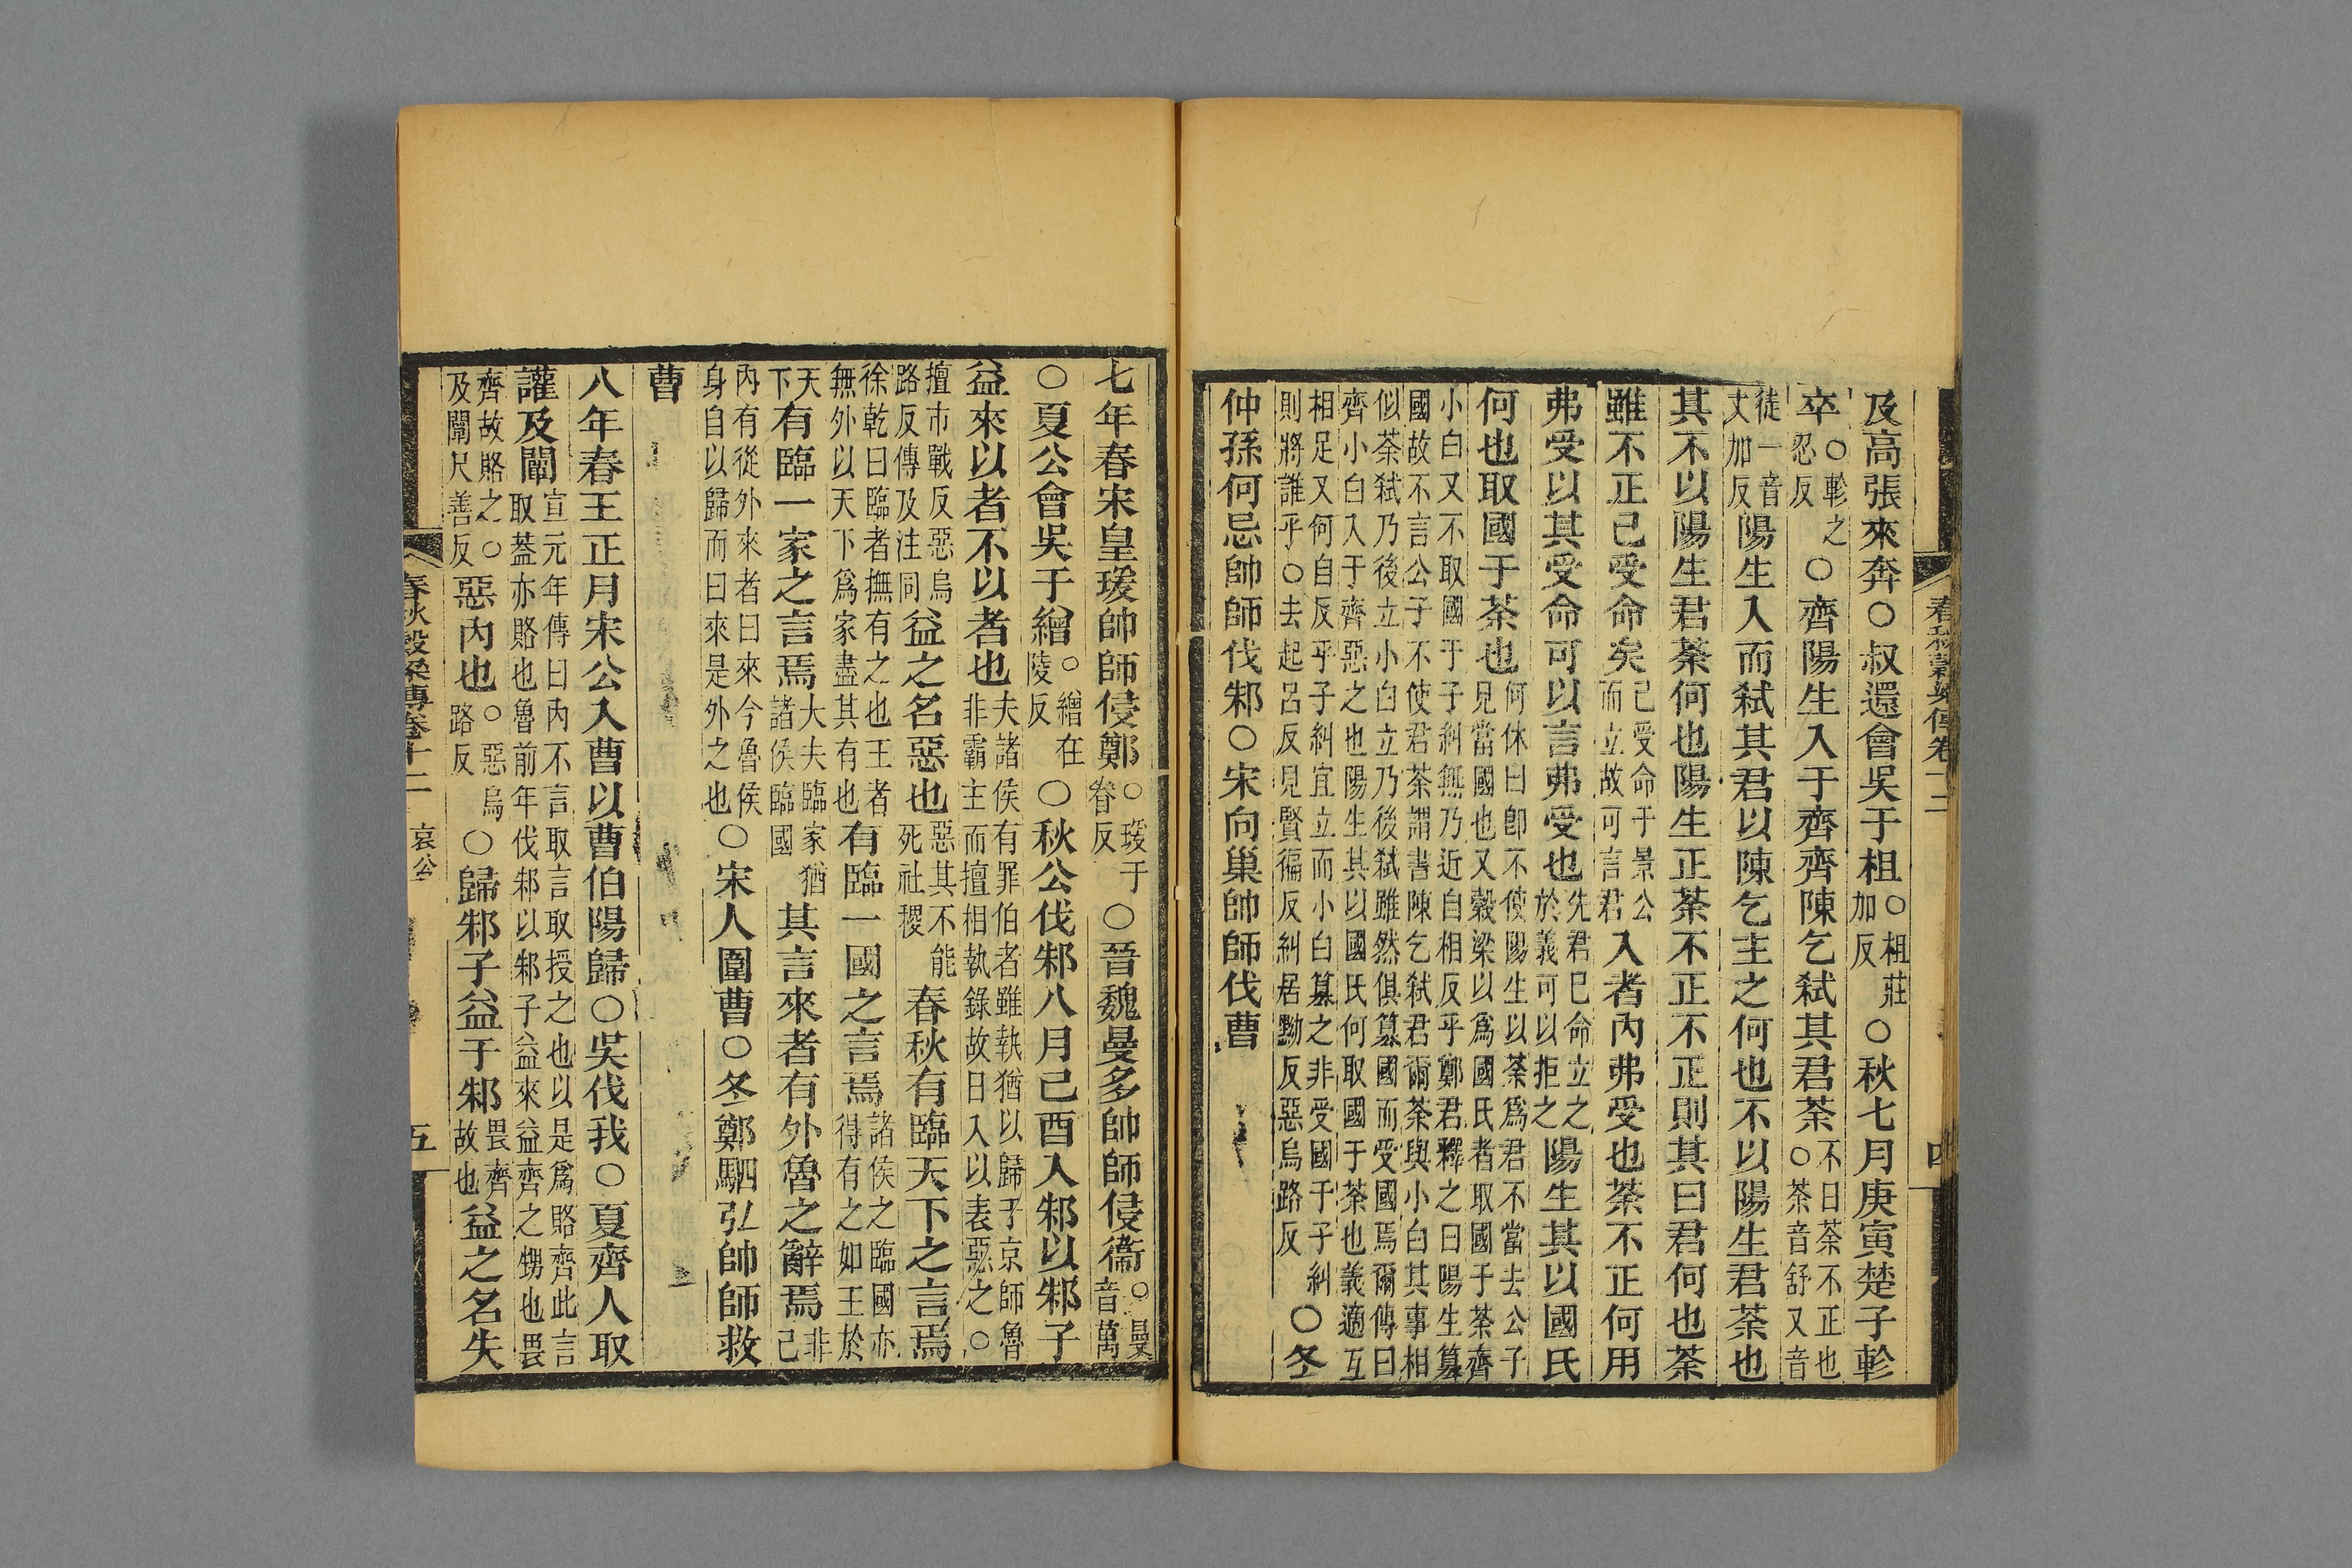 春秋穀梁傳卷十二　四
及高張來奔○叔還會吳于柤○柤莊加反○秋七月庚寅楚子軫
卒○軫之忍反○齊陽生入于齊齊陳乞弒其君荼不日荼不正也○荼音舒又音
徒一音丈加反陽生入而弒其君以陳乞主之何也不以陽生君荼也
其不以陽生君荼何也陽生正荼不正不正則其曰君何也荼
雖不正已受命矣已受命于景公而立故可言君入者內弗受也荼不正何用
弗受以其受命可以言弗受也先君已命立之於義可以拒之陽生其以國氏
何也取國于荼也何休曰卽不使陽生以荼爲君不當去公子見當國也又穀梁以爲國氏者取國于荼齊
小白又不取國于子糾無乃近自相反乎鄭君釋之曰陽生篡國故不言公子不使君荼謂書陳乞弒君爾荼與小白其事相
似荼弒乃後立小白立乃後弒雖然俱篡國而受國焉爾傳曰齊小白入于齊惡之也陽生其以國氏何取國于荼也義適互
相足又何自反乎子糾宜立而小白篡之非受國于子糾則將誰乎○去起呂反見賢徧反糾居黝反惡烏路反○冬
仲孫何忌帥師伐邾○宋向巢帥師伐曹
七年春宋皇瑗帥師侵鄭○瑗于眷反○晉魏曼多帥師侵衞○曼音萬
○夏公會吳于繒○繒在陵反○秋公伐邾八月己酉入邾以邾子
益來以者不以者也夫諸侯有罪伯者雖執猶以歸于京師魯非霸主而擅相執錄故日入以表惡之○
擅市戰反惡烏路反傳及注同益之名惡也惡其不能死社稷春秋有臨天下之言焉
徐乾曰臨者撫有之也王者無外以天下爲家盡其有也有臨一國之言焉諸侯之臨國亦得有之如王於
天下有臨一家之言焉大夫臨家猶諸侯臨國其言來者有外魯之辭焉非己
內有從外來者曰來今魯侯身自以歸而曰來是外之也○宋人圍曹○冬鄭駟弘帥師救
曹
八年春王正月宋公入曹以曹伯陽歸○吳伐我○夏齊人取
讙及闡宣元年傳曰內不言取言取授之也以是爲賂齊此言取葢亦賂也魯前年伐邾以邾子益來益齊之甥也畏
齊故賂之○及闡尺善反惡內也○惡烏路反○歸邾子益于邾畏齊故也益之名失
春秋穀梁傳卷十二　哀公　五